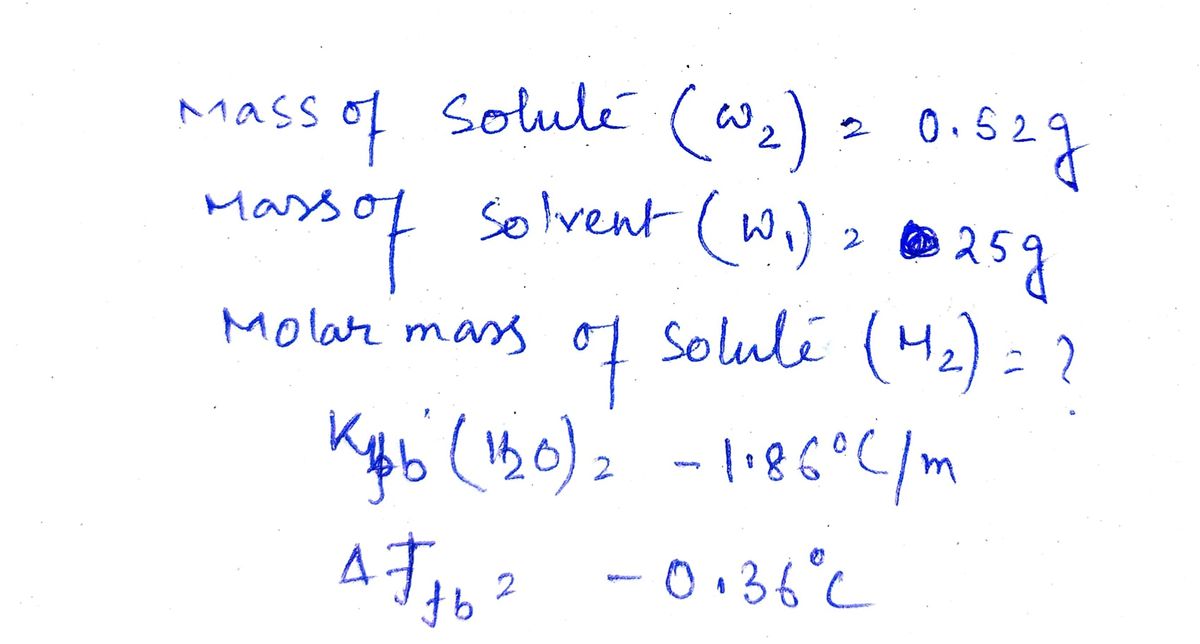 Mass of Solute (w₂) = 0.52g
Mass of Solvent (w₁) = 25g
Molar mass of Solute (M₂) = ?
Kfb (H₂O) = -1.86°C/m
ΔTfb = -0.36°C